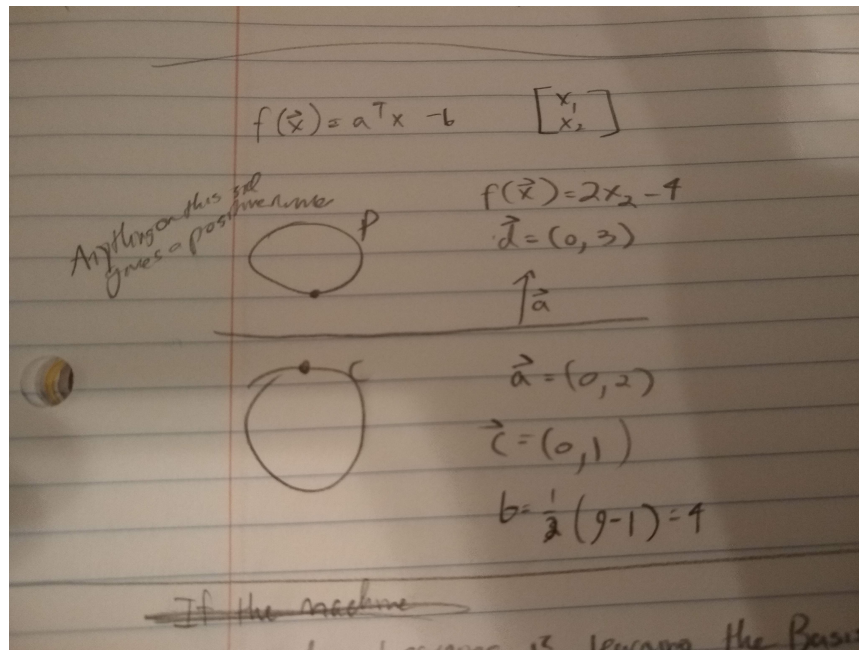 f(x⃗) = aᵀx - b [x₁ x₂]
Anything on this
gives a positive
f(x⃗) = 2x₂ - 4
d⃗ = (0, 3)
a⃗
C
a⃗ = (0, 2)
c⃗ = (0, 1)
b = ½ (9 - 1) = 4
If the machine
is learning the Basis